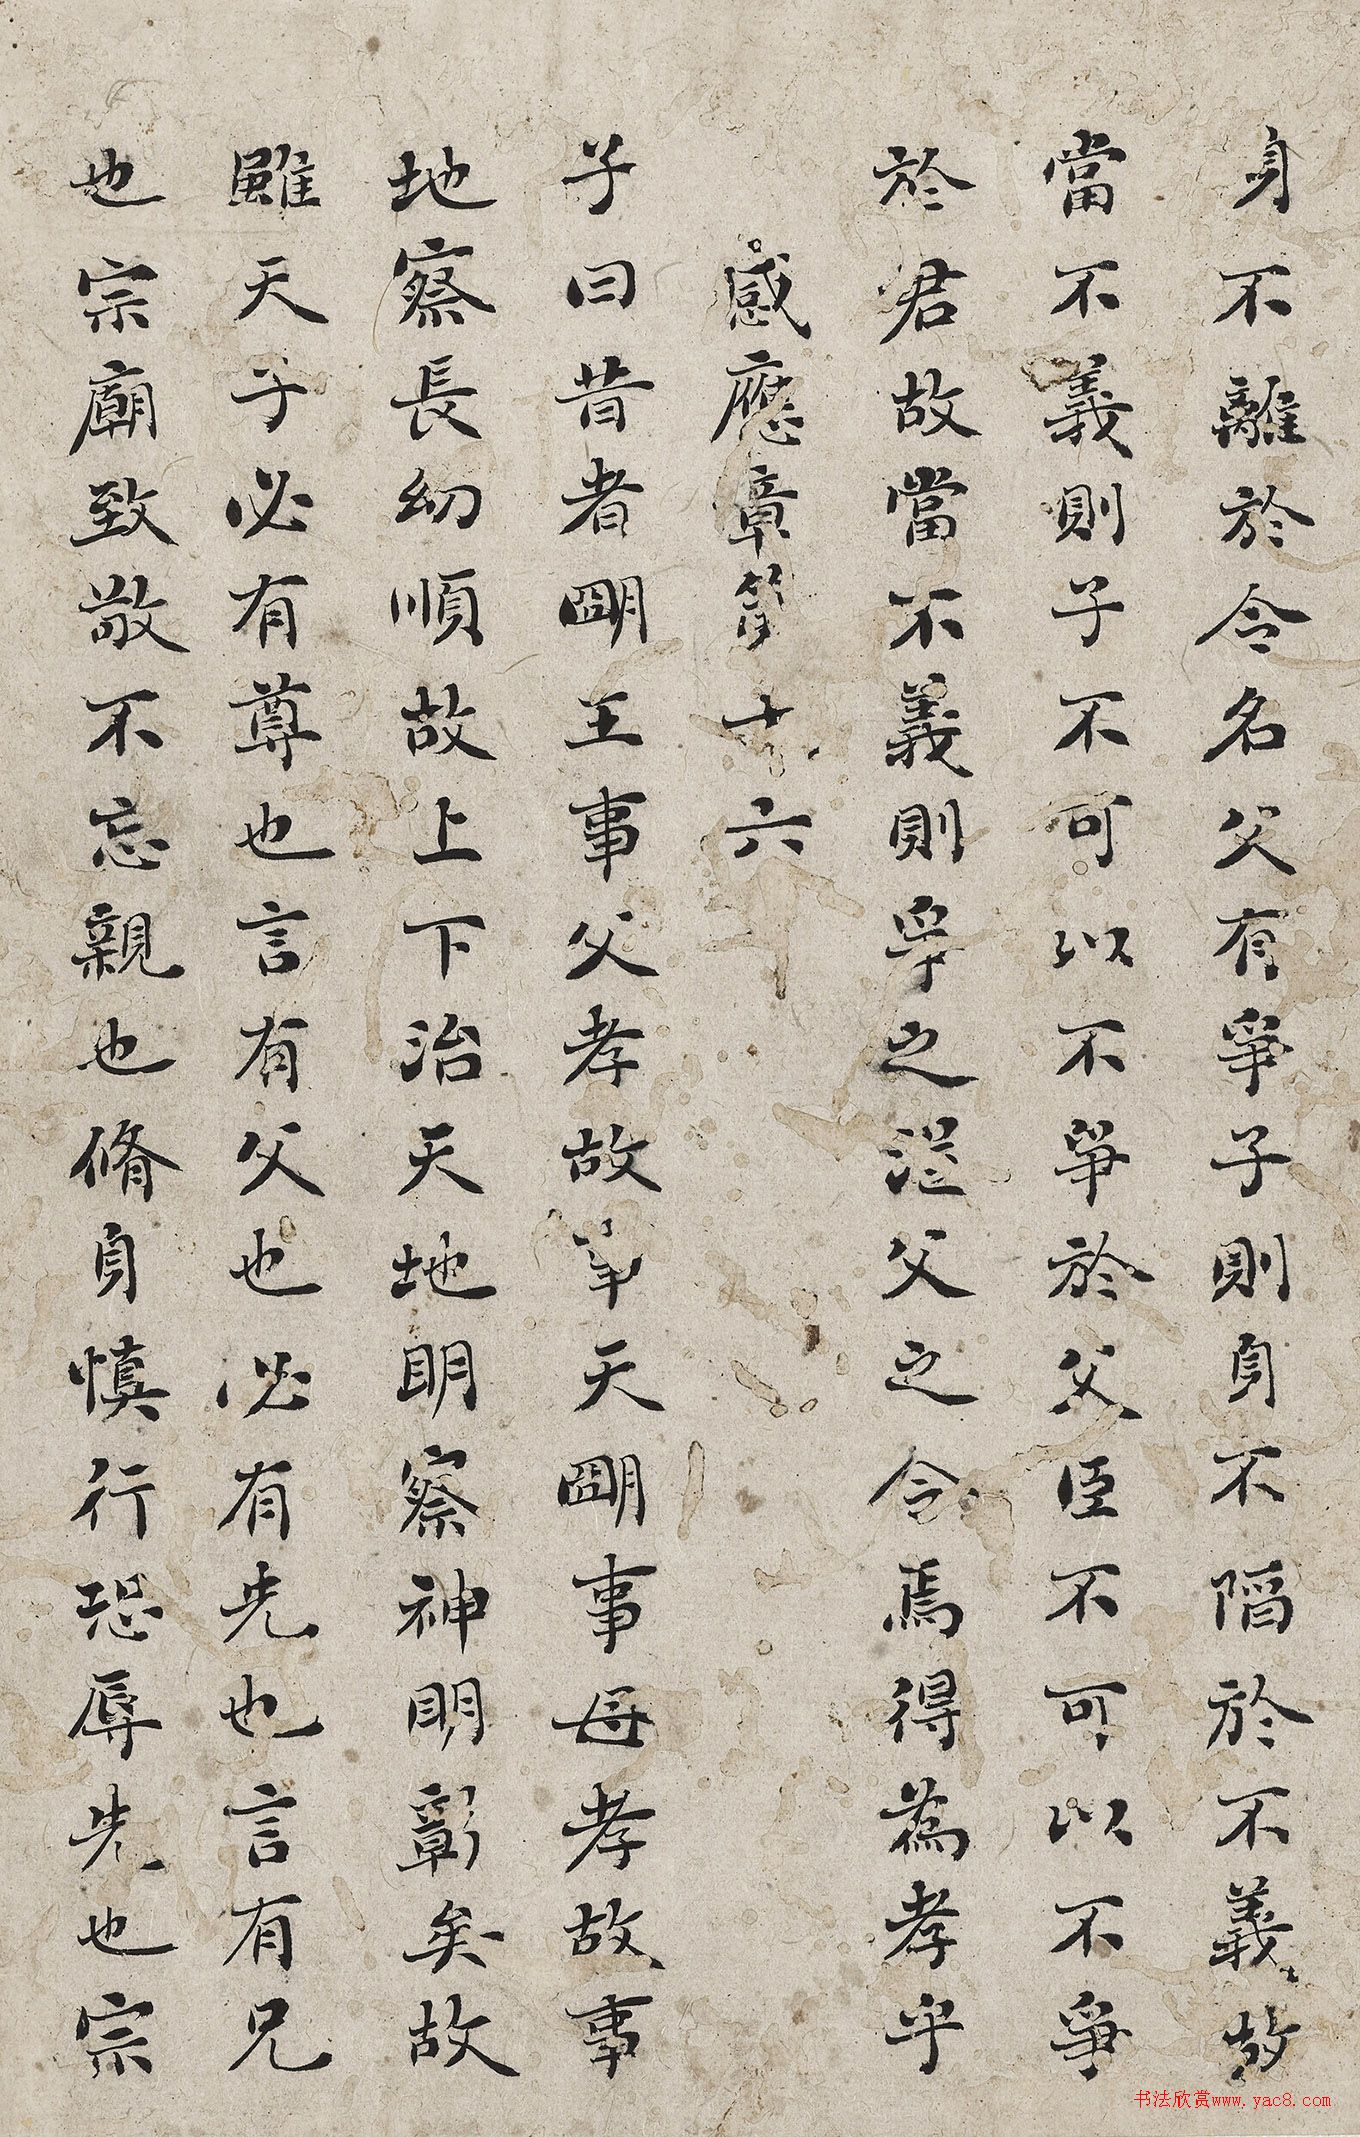 身不離於令名父有爭子則身不陷於不義故
當不義則子不可以不爭於父臣不可以不爭
於君故當不義則爭之從父之令焉得為孝乎
感應章第十六
子曰昔者朙王事父孝故事天朙事母孝故事
地察長幼順故上下治天地明察神明彰矣故
雖天子必有尊也言有父也必有先也言有兄
也宗廟致敬不忘親也脩身慎行恐辱先也宗
书法欣赏www.yac8.com